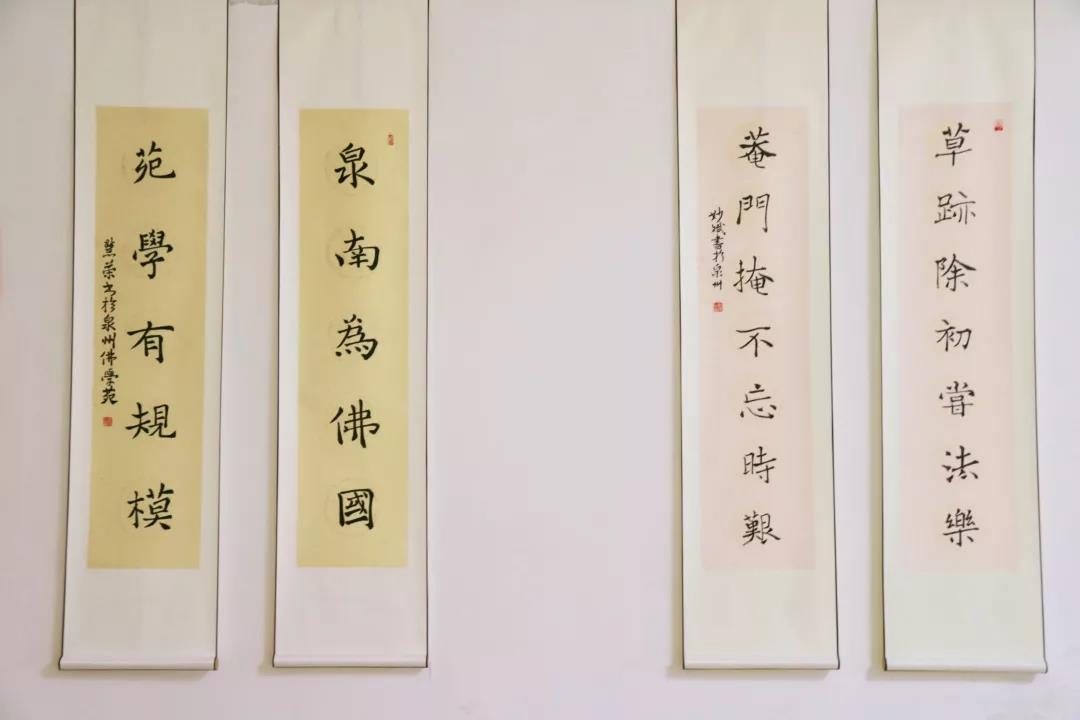 草跡除初嘗法樂
菴門掩不忘時艱
妙斌書於泉州
泉南為佛國
苑學有規模
慧荣书於泉州佛學苑